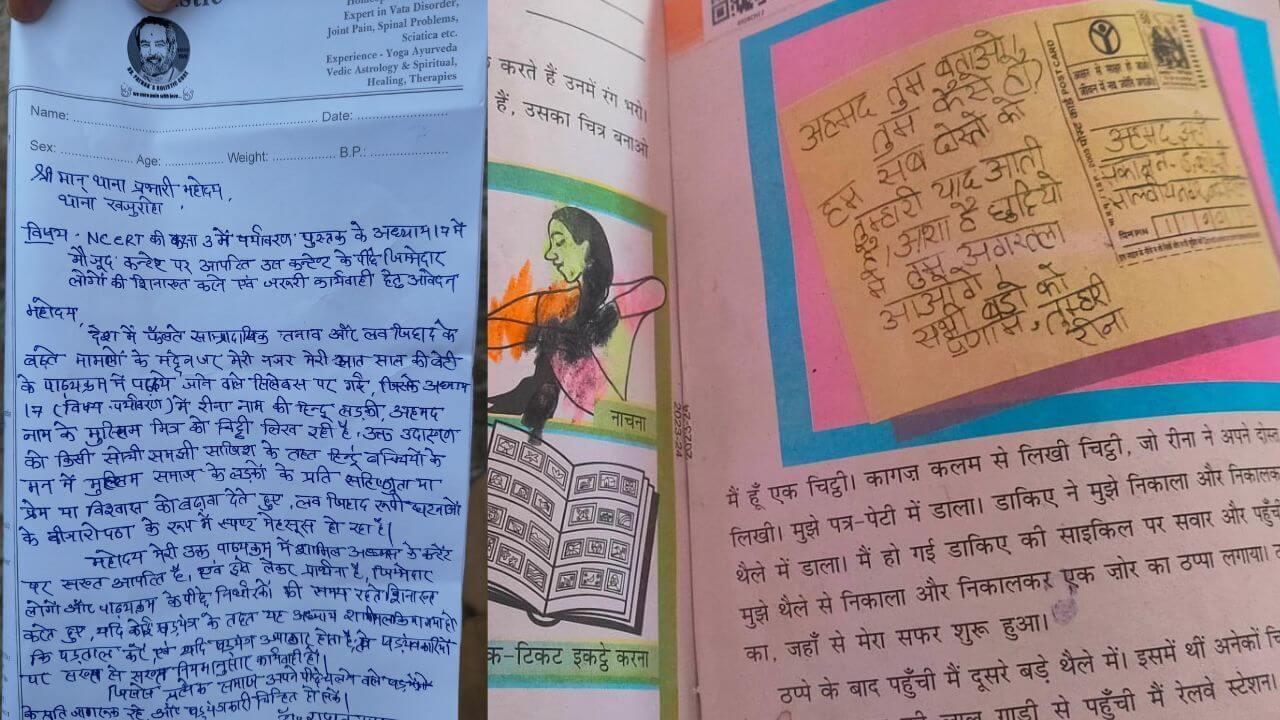 Expert in Vata Disorder,
Joint Pain, Spinal Problems,
Sciatica etc.
Experience - Yoga Ayurveda
Vedic Astrology & Spiritual,
Healing, Therapies
Name: Date:
Sex: Age: Weight: B.P.:
श्री मान् थाना प्रभारी महोदय,
थाना खजुराहो,
विषय - NCERT की कक्षा 3 में पर्यावरण पुस्तक के अध्याय 17 में
मौजूद कन्टेन्ट पर आपत्ति उक्त कन्टेन्ट के पीछे जिम्मेदार
लोगों की शिनाख्त करने एवं जरूरी कार्यवाही हेतु आवेदन
महोदय,
देश में फैलते साम्प्रदायिक तनाव और लव जिहाद के
बढ़ते मामलों के मद्देनजर मेरी नजर मेरी सात साल की बेटी
के पाठ्यक्रम में पढ़ाये जाने वाले सिलेबस पर गई, जिसके अध्याय
17 (विषय-पर्यावरण) में रीना नाम की हिन्दू लड़की, अहमद
नाम के मुस्लिम मित्र को चिट्ठी लिख रही है, उक्त उदाहरण
को किसी सोची समझी साजिश के तहत हिन्दू बच्चियों के
मन में मुस्लिम समाज के लड़कों के प्रति सहिष्णुता या
प्रेम या विश्वास को बढ़ावा देते हुए, लव जिहाद रूपी घटनाओं
के बीजारोपण के रूप में स्पष्ट महसूस हो रहा है।
महोदय मेरी उक्त पाठ्यक्रम में शामिल के कन्टेन्ट
पर सख्त आपत्ति है, एवं इसे लेकर प्रार्थना है, जिम्मेदार
लोगों और पाठ्यक्रम के पीछे की समय रहते शिनाख्त
करते हुए, यदि कोई षड्यंत्र के तहत यह अध्याय
कि पड़ताल करें एवं यदि षड्यंत्र होता है, तो
पर सख्त से सख्त नियमानुसार कार्यवाही हो।
प्रत्येक समाज अपने पीछे वाले
के प्रति जागरूक रहे, और चिन्हित हो सके।
करते हैं उनमें रंग भरो।
हैं, उसका चित्र बनाओ
नाचना
क-टिकट इकट्ठे करना
2023-24
अहमद तुम बताओ,
तुम कैसे हो?
हम सब दोस्तों को
तुम्हारी याद आती
है, आशा है छुट्टियों
में तुम अगरतला
आओगे।
सभी बड़ों को
प्रणाम, तुम्हारी
रीना
POST CARD
अहमद अली
पिन PIN
मैं हूँ एक चिट्ठी। कागज़ कलम से लिखी चिट्ठी, जो रीना ने अपने दोस्त
लिखी। मुझे पत्र-पेटी में डाला। डाकिए ने मुझे निकाला और निकालकर
थैले में डाला। मैं हो गई डाकिए की साइकिल पर सवार और पहुँची
मुझे थैले से निकाला और निकालकर एक ज़ोर का ठप्पा लगाया।
का, जहाँ से मेरा सफर शुरू हुआ।
ठप्पे के बाद पहुँची मैं दूसरे बड़े थैले में। इसमें थीं अनेकों
लाल गाड़ी से पहुँची मैं रेलवे स्टेशन।